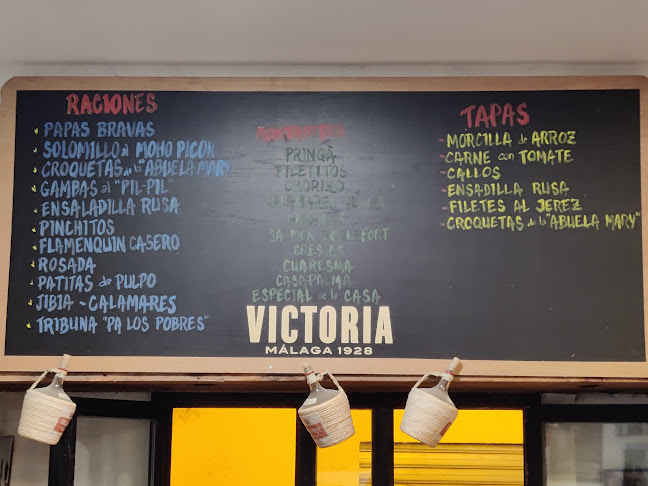 RACIONES
PAPAS BRAVAS
SOLOMILLO al MOHO PICON
CROQUETAS de la "ABUELA MARY"
GAMBAS al "PIL-PIL"
ENSALADILLA RUSA
PINCHITOS
FLAMENQUIN CASERO
ROSADA
PATITAS de PULPO
JIBIA - CALAMARES
TRIBUNA "PA LOS POBRES"
PRINGÁ
FILETITOS
CHORIZO
CUARESMA
CASAPALMA
ESPECIAL de la CASA
VICTORIA
MÁLAGA 1928
TAPAS
MORCILLA de ARROZ
CARNE con TOMATE
CALLOS
ENSADILLA RUSA
FILETES AL JEREZ
CROQUETAS de la "ABUELA MARY"